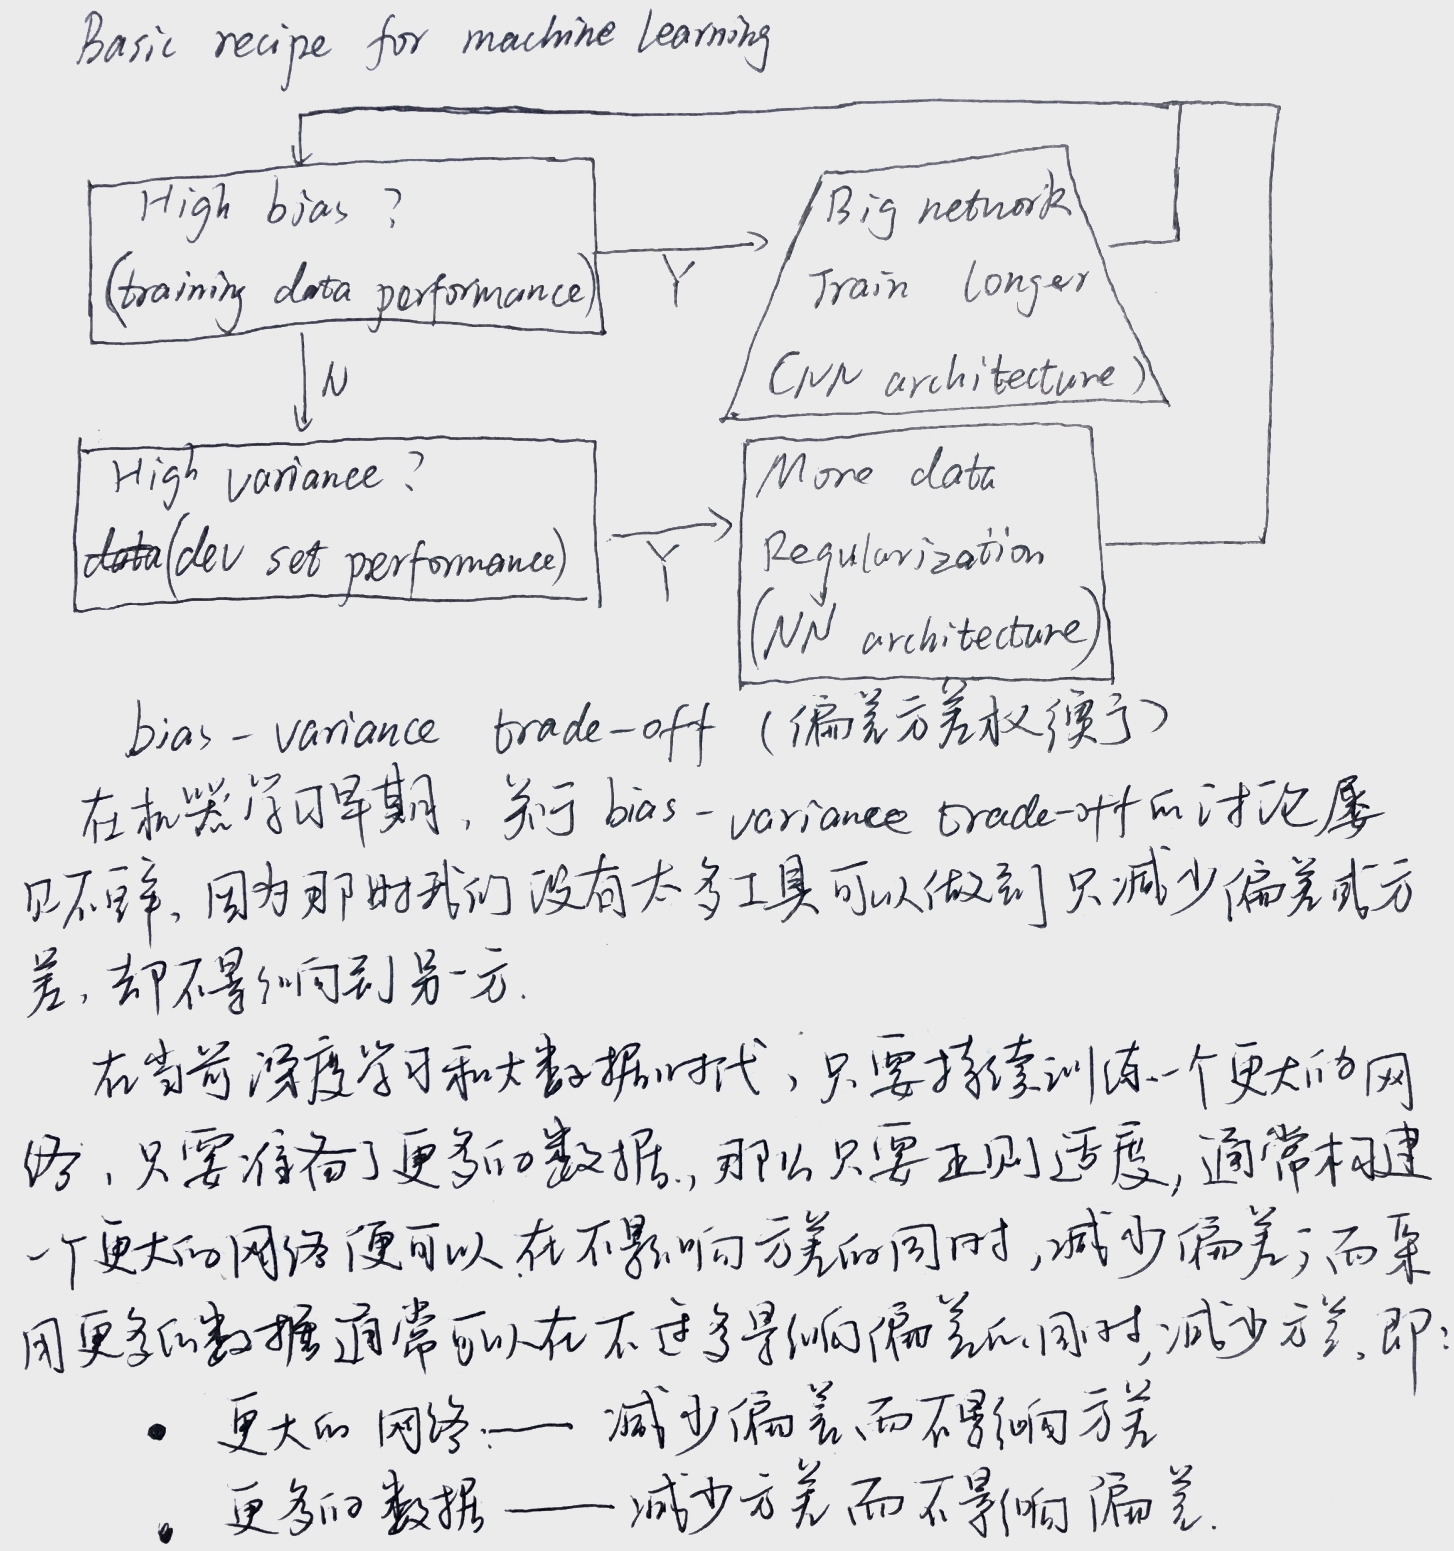 Basic recipe for machine learning
High bias ?
(training data performance)
Y
Big network
Train longer
(NN architecture)
N
High variance ?
data (dev set performance)
Y
More data
Regularization
(NN architecture)
bias-variance trade-off (偏差方差权衡)
在机器学习早期, 关于 bias-variance trade-off的讨论屡
见不鲜, 因为那时我们没有太多工具可以做到只减少偏差或方
差, 却不影响到另一方.
在当前深度学习和大数据时代, 只要持续训练一个更大的网
络, 只要准备了更多的数据, 那么只要正则适度, 通常构建
一个更大的网络便可以在不影响方差的同时, 减少偏差; 而采
用更多的数据通常可以在不过多影响偏差的同时, 减少方差. 即:
• 更大的网络 —— 减少偏差而不影响方差
• 更多的数据 —— 减少方差而不影响偏差.